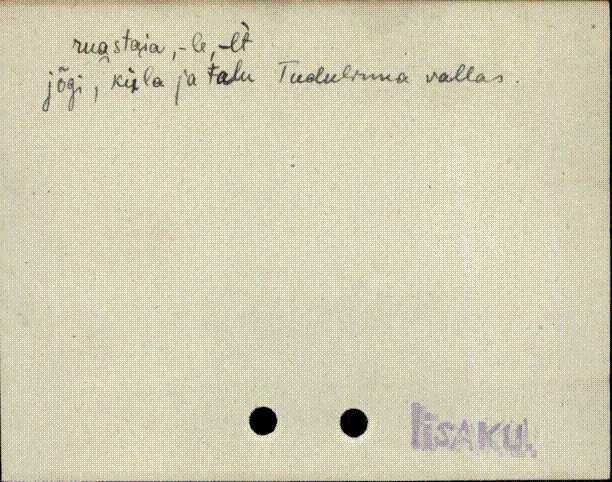 ruastaia, -le, -lt̀
jõgi, küla ja talu Tudulinna vallas.
Iisaku.